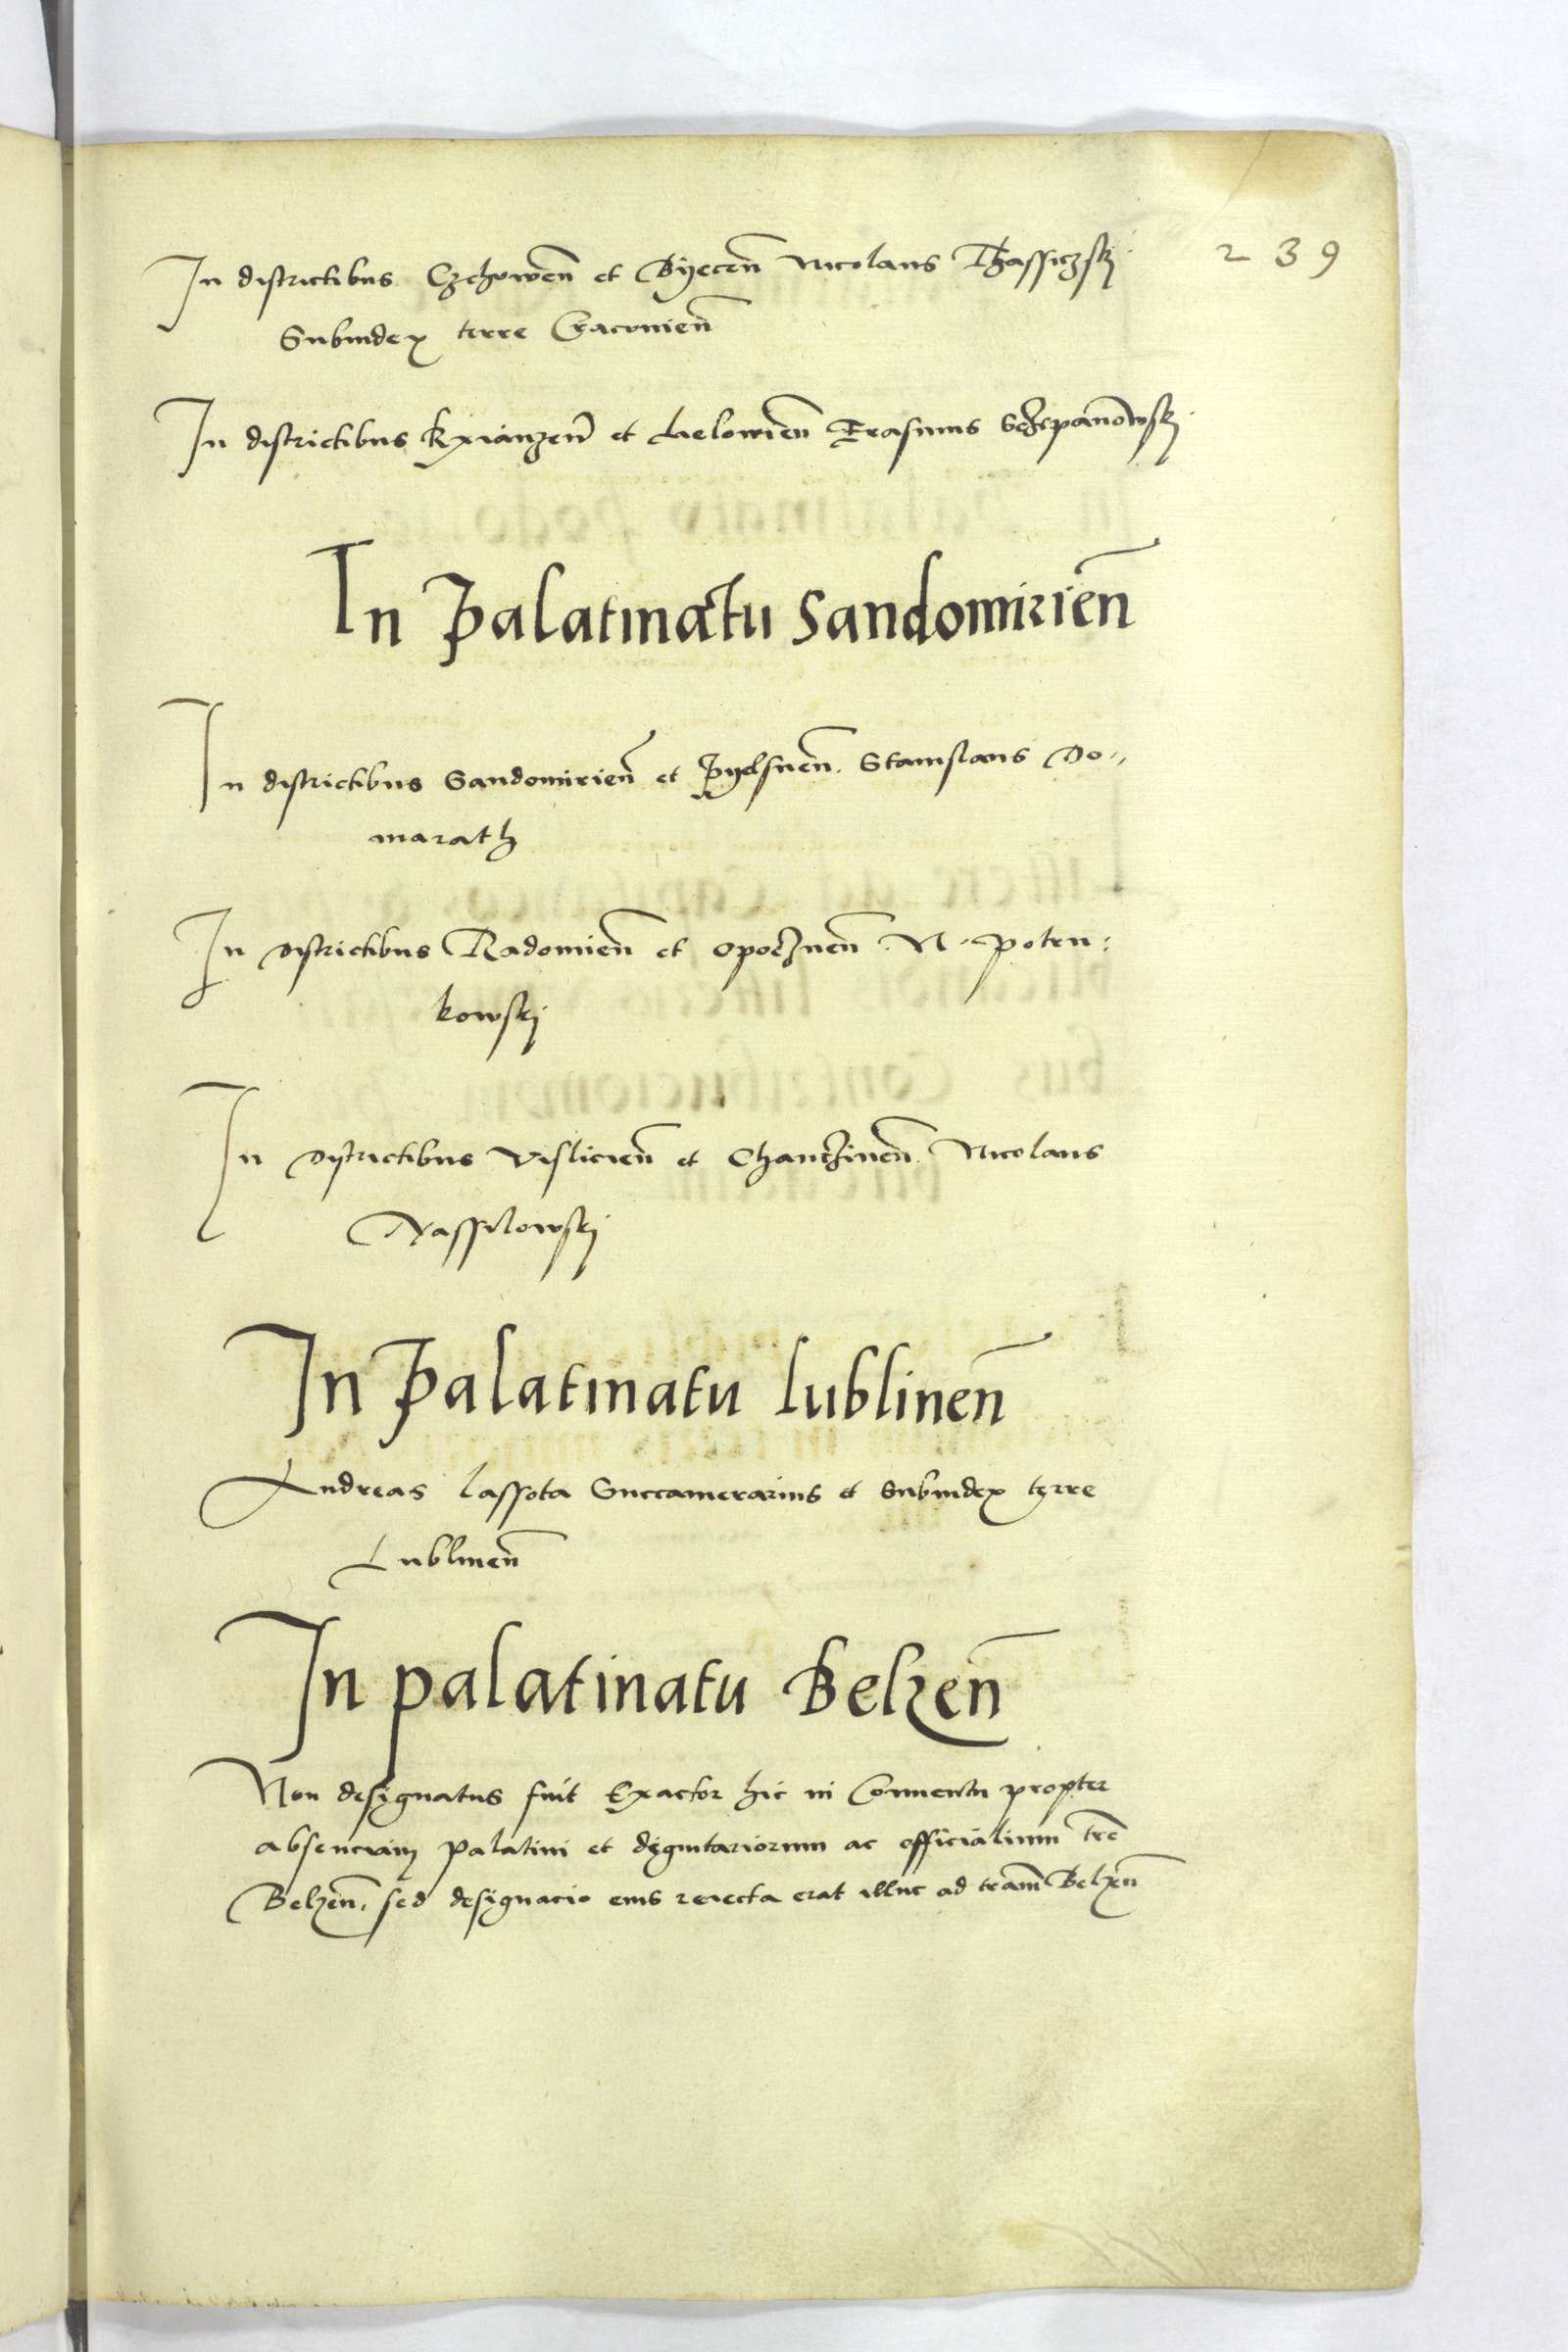 239
In districtibus Czchowen̄ et Byecen̄ Nicolaus Thassiczskj
Subiudex terre Cracouien̄
In districtibus Kxianzen̄ et Lelowien̄ Erasmus Sczepanowskj
In Palatinatu Sandomirien̄
In districtibus Sandomirien̄ et Pylsnen̄. Stanislaus Do„
marath
In districtibus Radomien̄ et Opocznen̄. N. Poten:
kowskj
In districtibus Vislicien̄ et Chanczinen̄. Nicolaus
Nassilowskj
In Palatinatu Lublinen̄
Andreas Lassota Succamerarius et Subiudex terre
Lublinen̄
In palatinatu Belzen̄
Non designatus fuit Exactor hic in Conuentu propter
absenciam Palatini et dignitariorum ac officialium tr̄e
Belzen̄. sed designacio eius reiecta erat illuc ad tr̄am Belzen̄